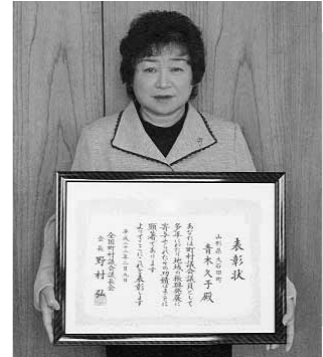 表彰状
山形県大石田町
青木久子殿
あなたは町村議会議員として
多年にわたり地域の振興発展に
寄与せられたその功績はまことに
顕著であります
よってここにこれを表彰します
平成二十二年二月九日
全国町村議会議長会
会長野村弘